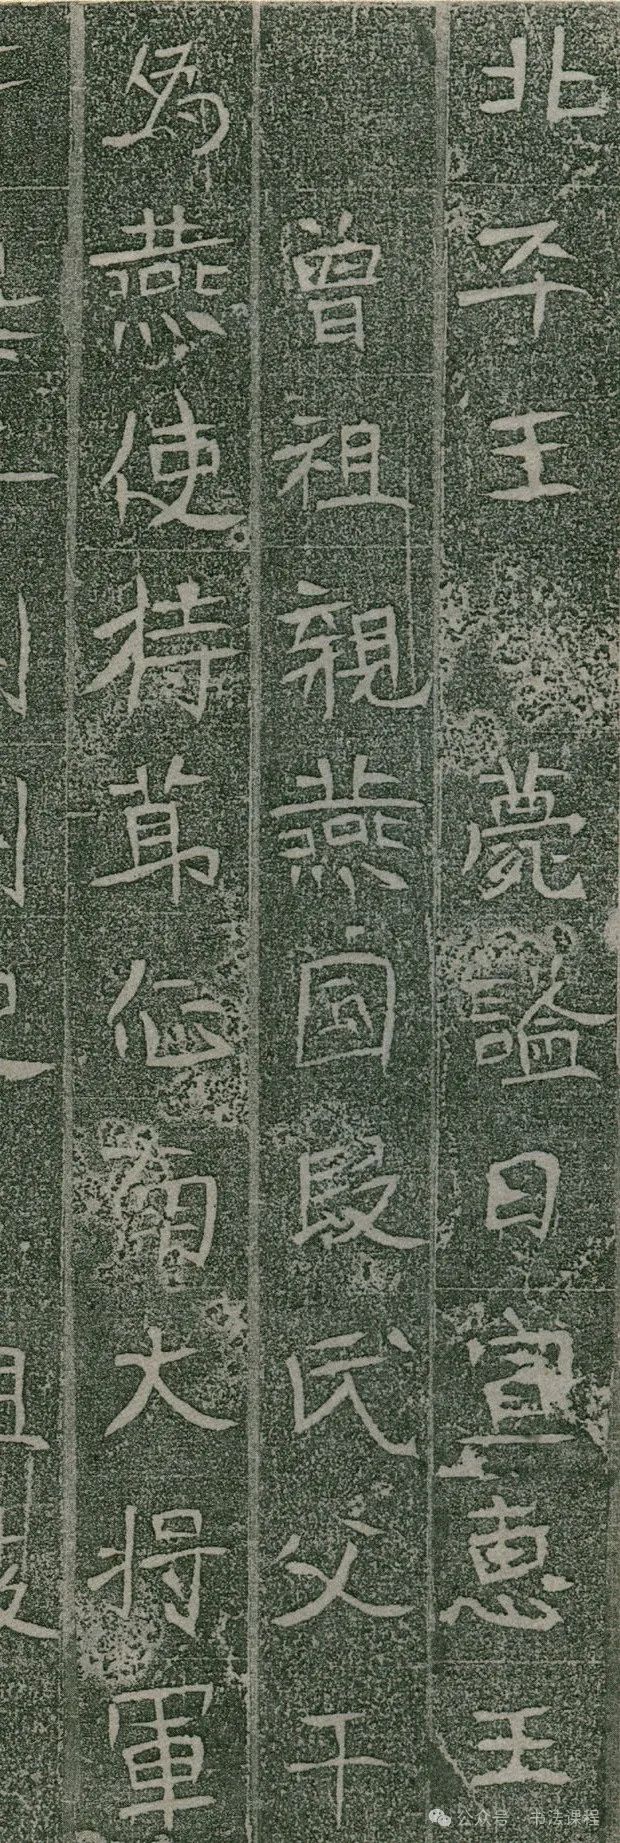 北子王薨謚曰宣惠王
曾祖親燕國段氏父干
為燕使持節征南大将軍
公众号 · 书法课程